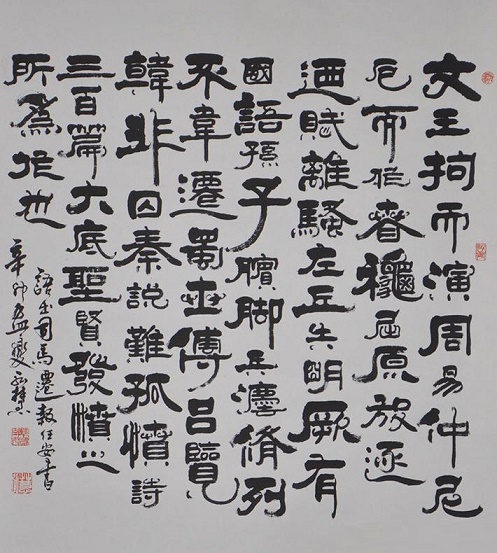 文王拘而演周易仲尼
厄而作春龝屈原放逐
迺賦離騷左丘失明厥有
國語孫子臏脚兵灋脩列
不韋遷蜀世傳呂覽
韓非囚秦說難孤憤詩
三百篇大底聖賢發憤之
所為作也
語出司馬遷報任安書
辛卯孟夏